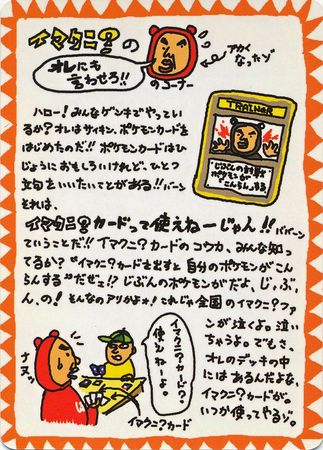 イマクニ?の
オレにも
言わせろ!!
のコーナー
アカく
なったゾ
ハロー!みんなゲンキでやってい
るか?オレはサイキン、ポケモンカードを
はじめたのだ!!ポケモンカードはひ
じょうにおもしろいけれど、ひとつ
文句をいいたいことがある!!バーン
それは、
TRAINER
じぶんの
ポケモンが
こんらんする
イマクニ?カードって使えねーじゃん!!ババーン
ていうことだ!!イマクニ?カードのコウカ、みんな知っ
てるか?“イマクニ?カードを出すと自分のポケモンがこん
らんする”だぜ!!じぶんのポケモンがだよ、じ、ぶ、
ん、の!そんなのアリかよォ!これじゃ全国のイマクニ?ファ
ンが泣くよ。泣い
ちゃうよ。でもさ、
オレのデッキの中
にはあるんだよな、
イマクニ?カードが。
いつか使ってやるゾ。
イマクニ?カード?
使えねーよ。
ナヌッ
イマクニ?カード